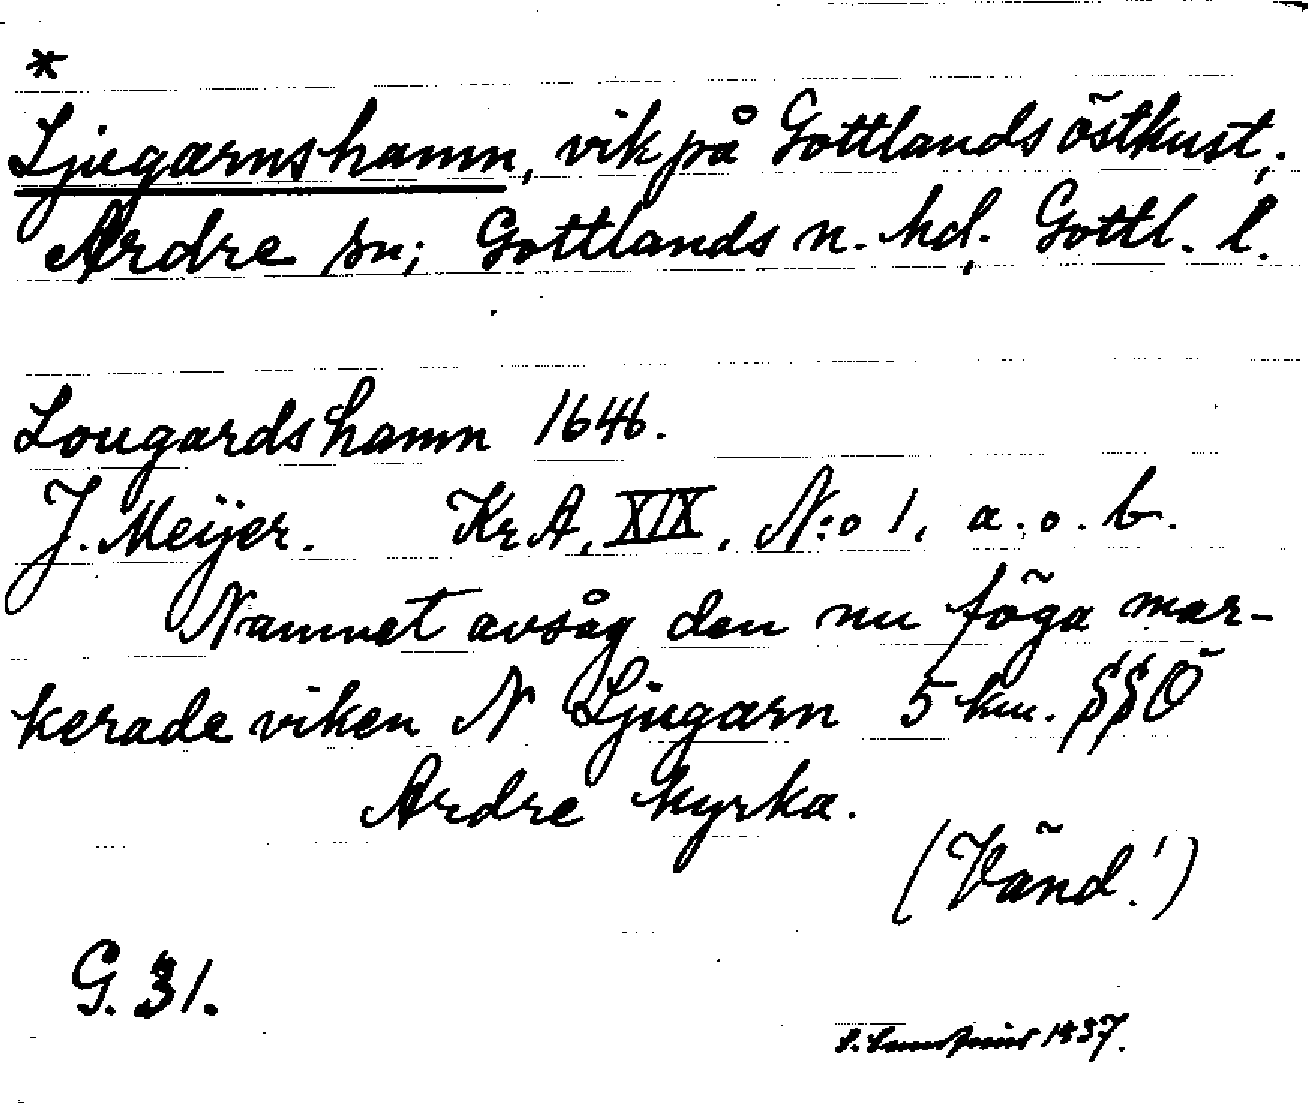 *
Ljugarnshamn, vik på Gottlands östkust,
Ardre sn; Gottlands n. hd, Gottl. l.
Lougardshamn 1646.
J. Meijer. KrA, XIX, N:o 1, a.o.b.
Namnet avsåg den nu föga mar-
kerade viken N Ljugarn 5 km. SSÖ
Ardre kyrka.
(Vänd!)
G. 31.
1937.